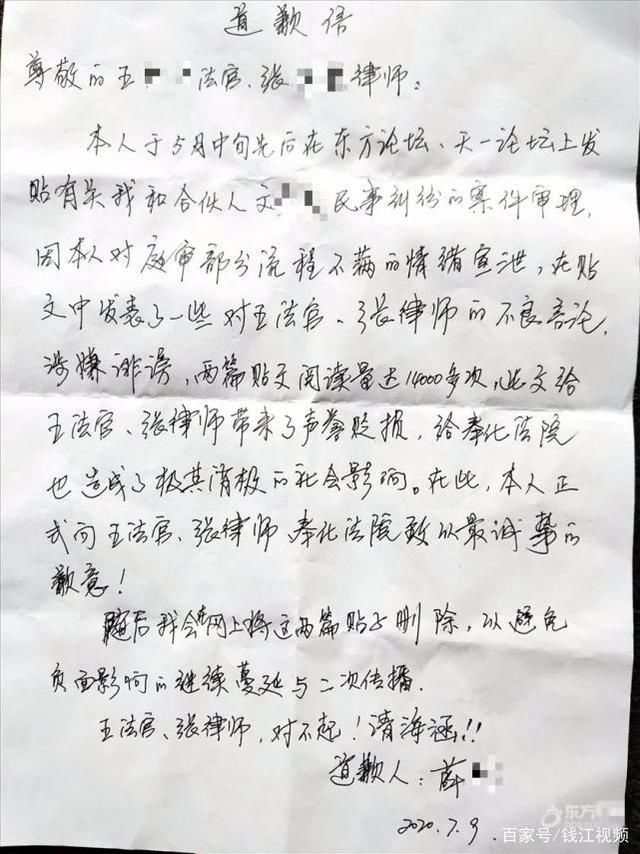 道歉信
尊敬的王法官、张律师:
本人于5月中旬先后在东方论坛、天一论坛上发
贴有关我和合伙人文民事纠纷的案件审理,
因本人对庭审部分流程不满的情绪宣泄,在贴
文中发表了一些对王法官、张律师的不良言论,
涉嫌诽谤,两篇贴文阅读量达14000多次,此文给
王法官、张律师带来了声誉贬损,给奉化法院
也造成了极其消极的社会影响。在此,本人正
式向王法官、张律师、奉化法院致以最诚挚的
歉意!
随后我会在网上将这两篇贴文删除,以避免
负面影响的继续蔓延与二次传播.
王法官、张律师,对不起!请海涵!!
道歉人:薛
2020.7.9
东方
百家号/钱江视频